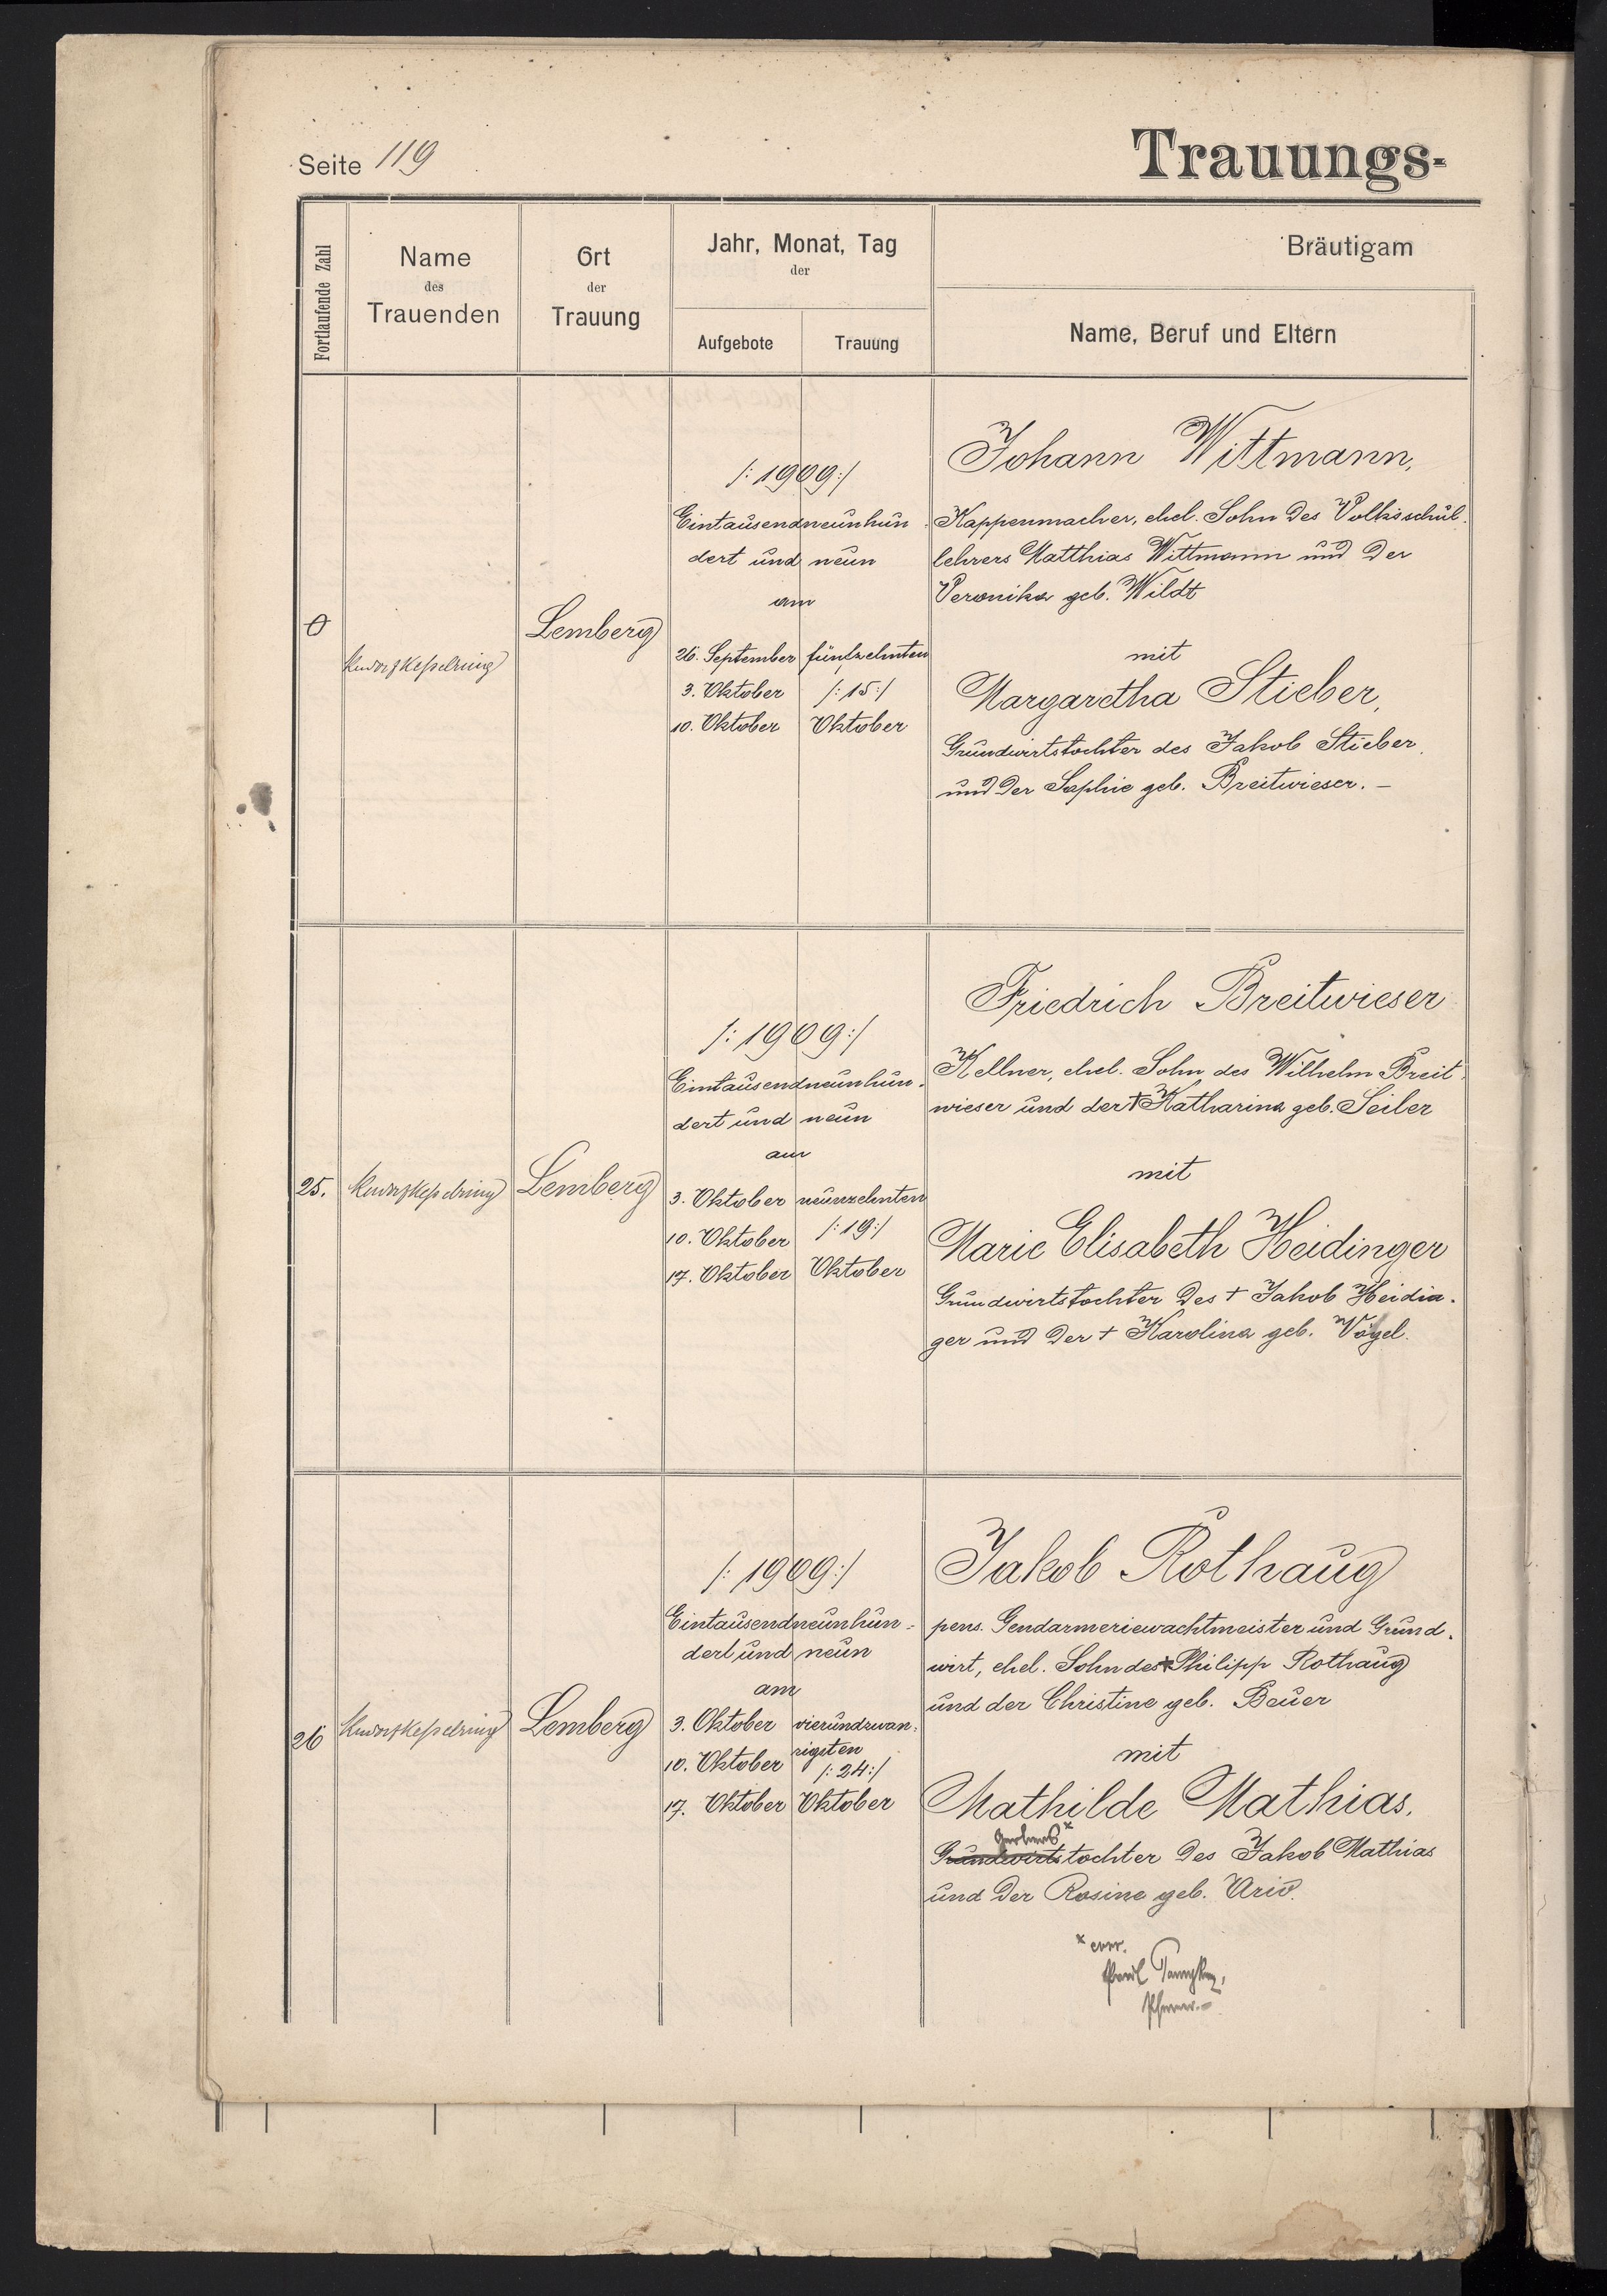 Seite 119
Trauungs-
Fortlaufende Zahl
Name
des
Trauenden
Ort
der
Trauung
Jahr, Monat, Tag
der
Aufgebote
Trauung
Bräutigam
Name, Beruf und Eltern
0
Lemberg
/: 1909 :/
Eintausendneunhun-
dert und neun
am
26. September
3. Oktober
10. Oktober
fünfzehnten
/: 15 :/
Oktober
Johann Wittmann,
Kappenmacher, ehel. Sohn des Volksschul-
lehrers Matthias Wittmann und der
Veronika geb. Wildt
mit
Margaretha Stieber,
Grundwirtstochter des Jakob Stieber
und der Sophie geb. Breitwieser. –
25.
Lemberg
/: 1909 :/
Eintausendneunhun-
dert und neun
am
3. Oktober
10. Oktober
17. Oktober
neunzehnten
/: 19 :/
Oktober
Friedrich Breitwieser
Kellner, ehel. Sohn des Wilhelm Breit-
wieser und der † Katharina geb. Seiler
mit
Marie Elisabeth Heidinger
Grundwirtstochter des † Jakob Heidin-
ger und der † Karolina geb. Vogel.
26
Lemberg
/: 1909 :/
Eintausendneunhun-
dert und neun
am
3. Oktober
10. Oktober
17. Oktober
vierundzwan-
zigsten
/: 24 :/
Oktober
Jakob Rothaug
pens. Gendarmeriewachtmeister und Grund-
wirt, ehel. Sohn des † Philipp Rothaug
und der Christine geb. Beuer
mit
Mathilde Mathias,
Gerbers x
Grundwirtstochter des Jakob Mathias
und der Rosine geb.
x corr.
Pfarrer. –